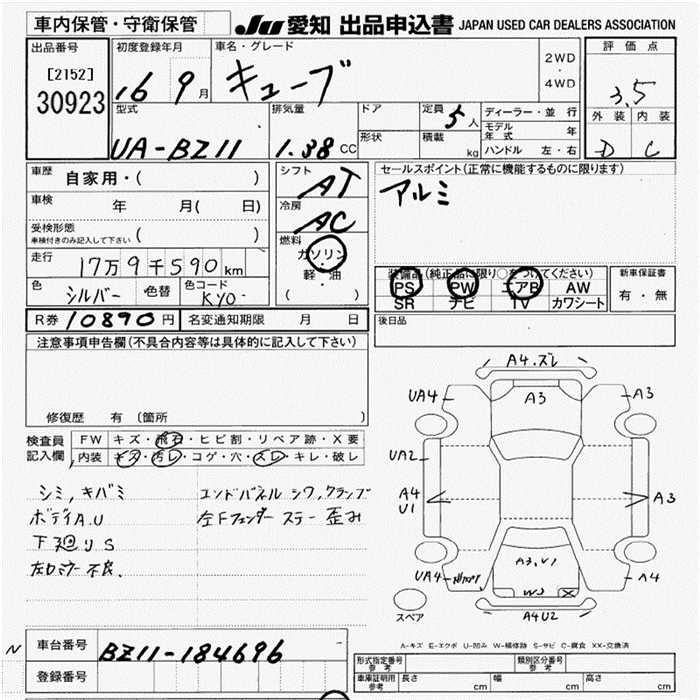 車内保管・守衛保管
JU 愛知 出品申込書 JAPAN USED CAR DEALERS ASSOCIATION
出品番号 初度登録年月 車名・グレード 評価点
[2152]
30923
16 9月 キューブ
2WD
・
4WD
3.5
型式 排気量 ドア 定員 5人 ディーラー・並行 外装 内装
形状 積載 kg モデル年式 年
UA-BZ11 1.38CC ハンドル 左・右 D C
車歴 自家用・( )
車検 年 月( 日)
受検形態
車検付きのみ記入して下さい ( )
走行 17万9千590km
色 シルバー 色替 色コード KYO
シフト AT
冷房 AC
燃料 ガソリン
軽・油
( )
セールスポイント(正常に機能するものに限ります)
アルミ
装備品(純正品に限り○をつけてください) 新車保証書
PS PW エアB AW 有・無
SR ナビ TV カワシート
R券 10890円 名変通知期限 月 日
後日品
注意事項申告欄(不具合内容等は具体的に記入して下さい)
修復歴 有 〔箇所 〕
検査員 FW キズ・飛石・ヒビ割・リペア跡・X要
記入欄 内装 キズ・汚レ・コゲ・穴・スレ・キレ・破レ
シミ,キバミ
ボディA.U
下廻りS
左ドミラー不良.
エンドパネルシワ,クランプ
左Fフェンダーステー歪み
A4.ズレ
UA4 A3 A3
UA2
A4
U1
A3
A3,U1
UA4
W3 X
A4
A4U2
スペア
A-キズ E-エクボ U-凹み W-補修跡 S-サビ C-腐食 XX-交換済
N
車台番号 BZ11-184696
登録番号
形式指定番号
参考
類別区分番号
参考
車庫証明用
参考
長さ cm 幅 cm 高さ cm